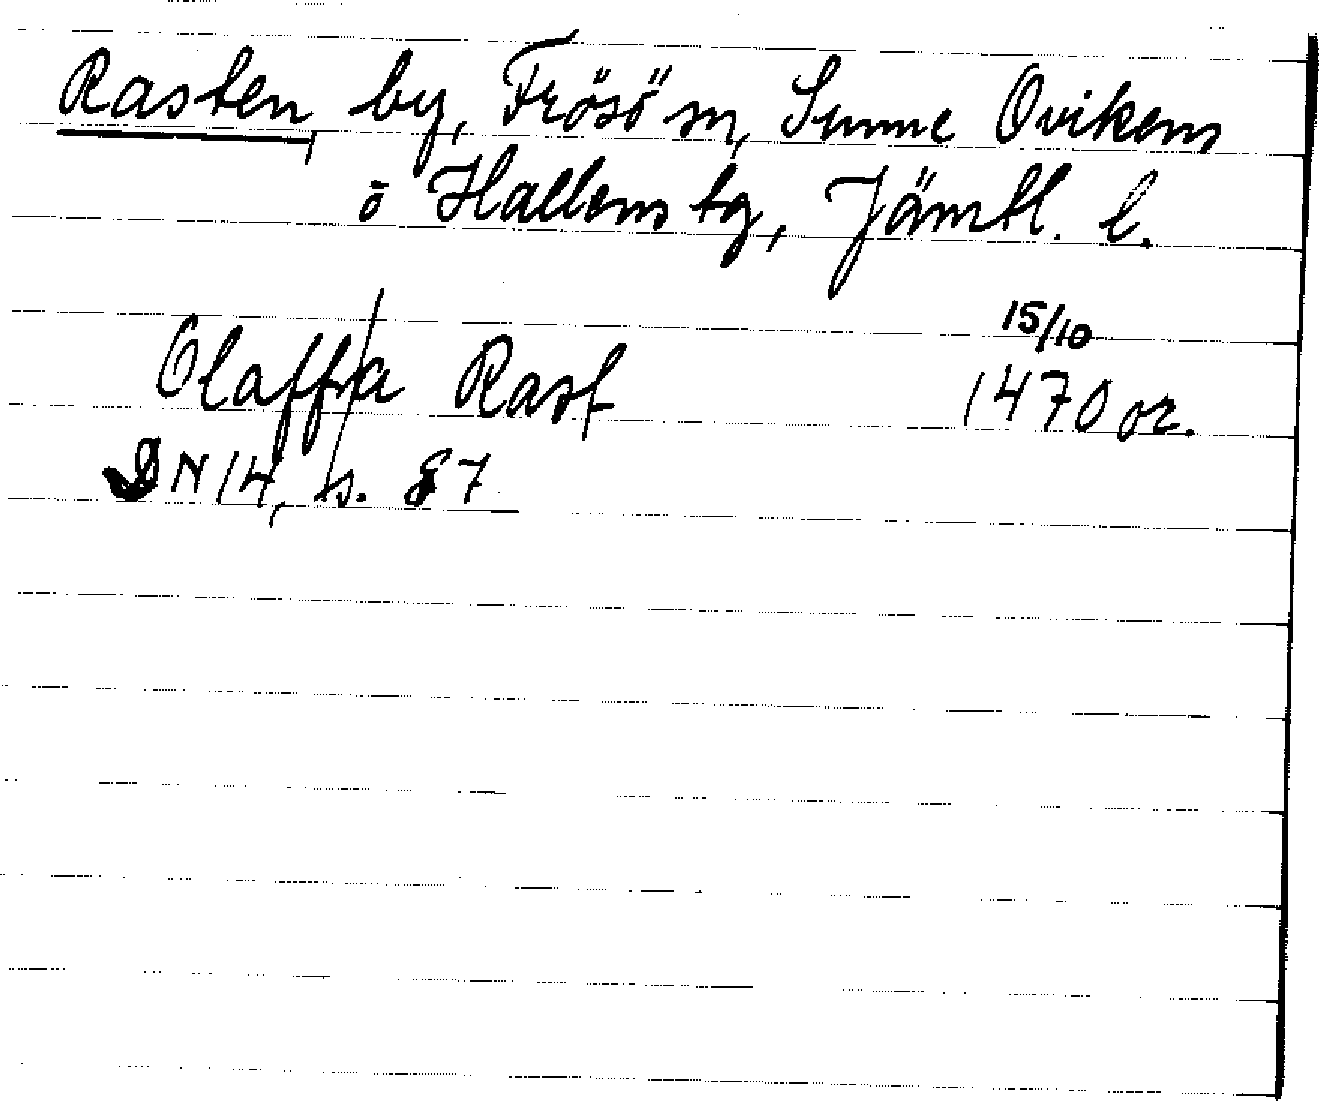 Rasten, by, Frösö sn, Sunne Ovikens
o Hallens tg, Jämtl. l.
Olaff / a Rast 15/10 1470 or.
DN 14, s. 87